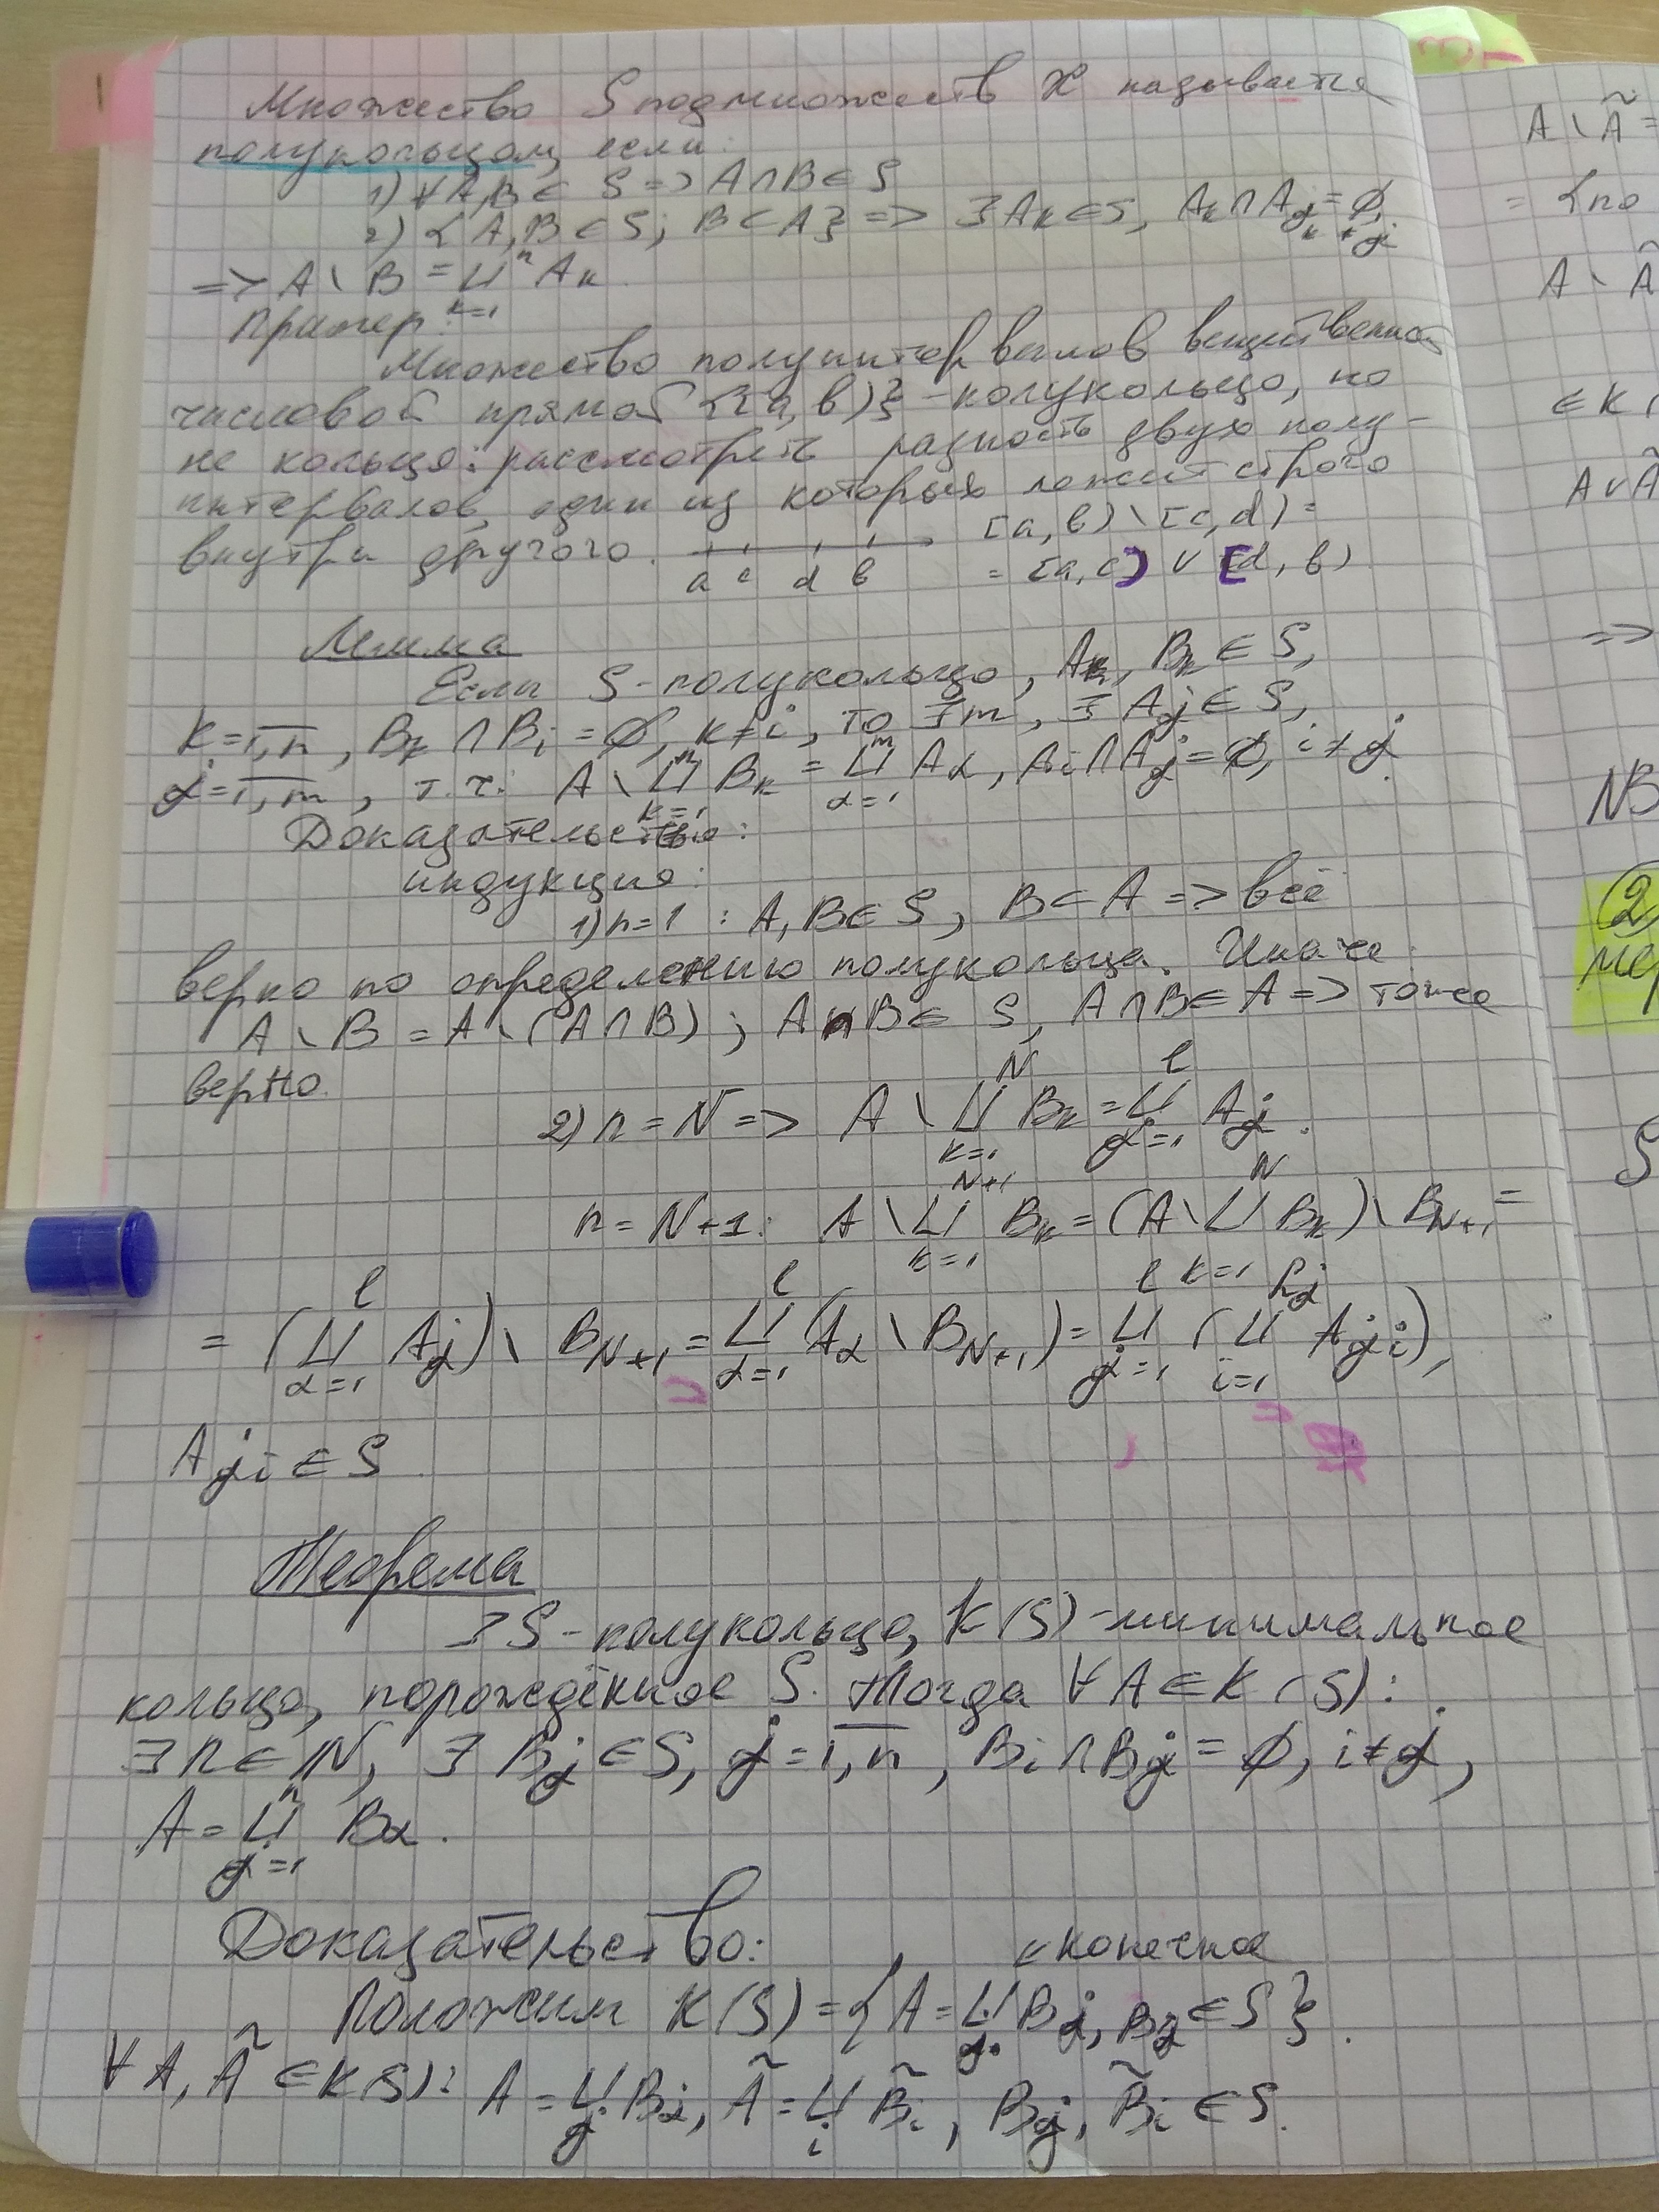 Множество S подмножеств X называется
полукольцом, если:
1) ∀A,B ∈ S => A∩B ∈ S
2) {A,B ∈ S; B ⊂ A} => ∃ A_k ∈ S, A_k ∩ A_j = ∅, k ≠ j
=> A \ B = ⊔_{k=1}^{n} A_k.
Пример:
Множество полуинтервалов вещественной
числовой прямой {[a,b)} - полукольцо, но
не кольцо: рассмотреть разность двух полу-
интервалов, один из которых лежит строго
внутри другого. [a,b) \ [c,d) =
a c d b = [a,c) ∨ [d,b)
Лемма
Если S - полукольцо, A_k, B_k ∈ S,
k = 1,n, B_k ∩ B_i = ∅, k ≠ i, то ∃ m, ∃ A_j ∈ S,
j = 1,m, т.ч. A \ ⊔_{k=1}^{n} B_k = ⊔_{j=1}^{m} A_j, A_i ∩ A_j = ∅, i ≠ j
Доказательство:
индукция:
1) n=1: A, B ∈ S, B ⊂ A => всё
верно по определению полукольца. Иначе
A \ B = A \ (A∩B); A∩B ∈ S, A∩B ∈ A => тоже
верно.
2) n = N => A \ ⊔_{k=1}^{N} B_k = ⊔_{j=1}^{l} A_j.
n = N+1: A \ ⊔_{k=1}^{N+1} B_k = (A \ ⊔_{k=1}^{N} B_k) \ B_{N+1} =
= (⊔_{j=1}^{l} A_j) \ B_{N+1} = ⊔_{j=1}^{l} (A_j \ B_{N+1}) = ⊔_{j=1}^{l} (⊔_{i=1}^{h_j} A_{ji}),
A_{ji} ∈ S.
Теорема
∃ S - полукольцо, K(S) - минимальное
кольцо, порождённое S. Тогда ∀A ∈ K(S):
∃ n ∈ N, ∃ B_j ∈ S, j = 1,n, B_i ∩ B_j = ∅, i ≠ j,
A = ⊔_{j=1}^{n} B_j.
Доказательство:
конечное
Положим K(S) = {A = ⊔_j B_j, B_j ∈ S}.
∀ A, Ã ∈ K(S): A = ⊔_j B_j, Ã = ⊔_i B̃_i, B_j, B̃_i ∈ S.
A \ Ã =
= {по
A \ Ã
∈ K (
A ∨ Ã
=>
NB
2
мер
S